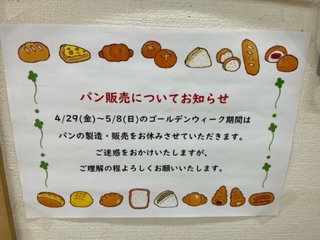 パン販売についてお知らせ
4/29(金)～5/8(日)のゴールデンウィーク期間は
パンの製造・販売をお休みさせていただきます。
ご迷惑をおかけいたしますが、
ご理解の程よろしくお願いいたします。